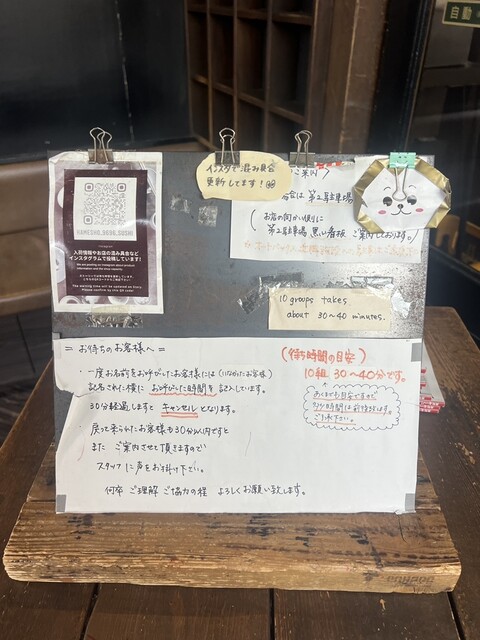 自動
インスタで混み具合
更新してます！
ご案内
合は 第2駐車場
お店の向かい側に
第2駐車場 黒い看板 ご案内しております。
HAMEZUSHI
instagram
入荷情報やお店の混み具合など
インスタグラムで投稿しています！
We are posting on Instagram about product
information and the store capacity.
The waiting time will be updated on Story.
Please confirm by the QR code!
10 groups takes
about 30~40 minutes.
= お待ちのお客様へ =
・一度お名前をお呼びしたお客様には(いなかったお客様)
記名された横に お呼びした時間を 記入しています。
30分経過しますと キャンセル となります。
・戻って来られたお客様も30分以内ですと
また ご案内させて頂きますので
スタッフに声をお掛け下さい。
何卒 ご理解 ご協力の程 よろしくお願い致します。
(待ち時間の目安)
10組 30~40分です。
あくまでも目安ですので
多少時間は前後致します。
ご了承下さい。